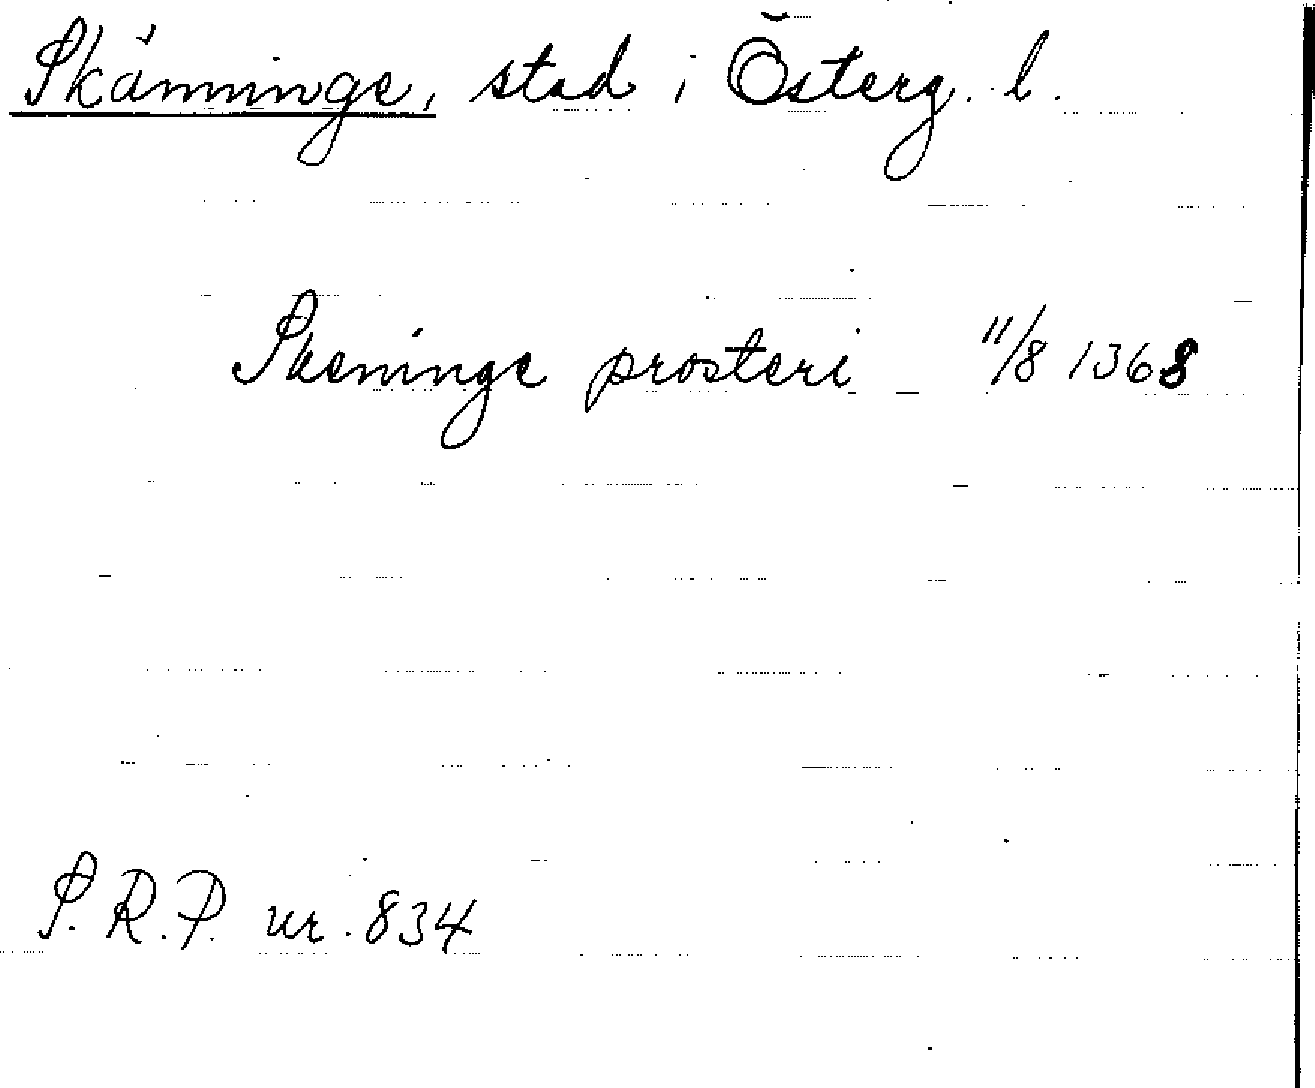 Skänninge, stad i Österg. l.
Skeninge prosteri 11/8 1368
S.R.P. nr. 834